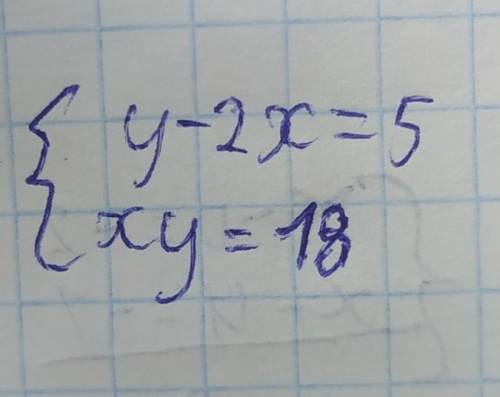 y-2x=5
xy=18